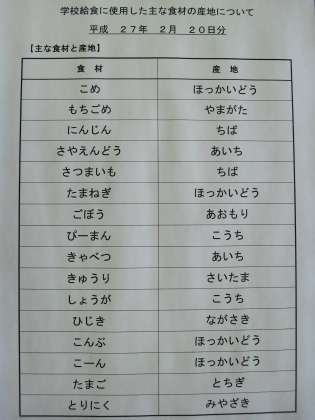 学校給食に使用した主な食材の産地について
平成 27年 2月 20日分
【主な食材と産地】
食材 産地
こめ ほっかいどう
もちごめ やまがた
にんじん ちば
さやえんどう あいち
さつまいも ちば
たまねぎ ほっかいどう
ごぼう あおもり
ぴーまん こうち
きゃべつ あいち
きゅうり さいたま
しょうが こうち
ひじき ながさき
こんぶ ほっかいどう
こーん ほっかいどう
たまご とちぎ
とりにく みやざき